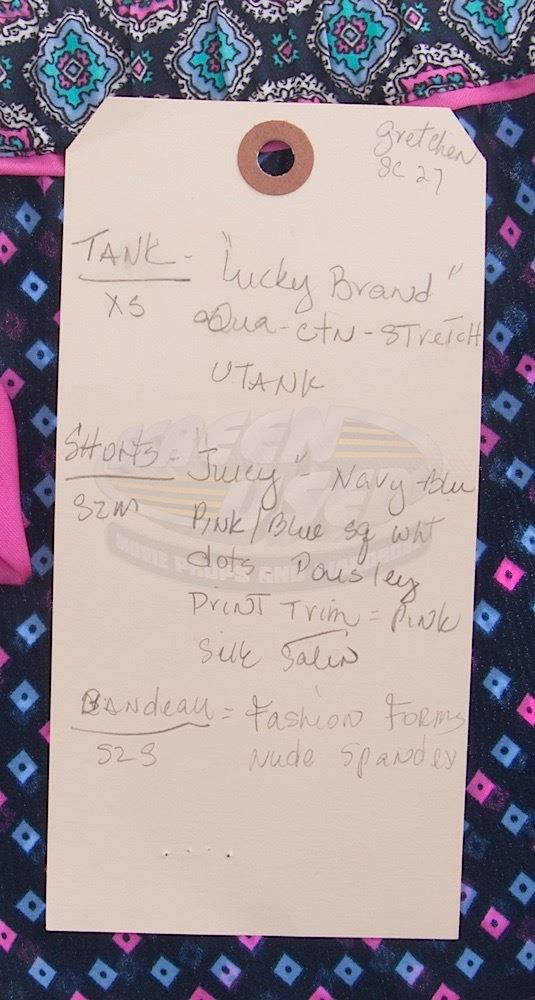 Gretchen
SC 27
TANK - "Lucky Brand"
XS
aQua-ctn-stretch
UTANK
SHORTS - "Juicy" - Navy-Blu
SZM
Pink/Blue sq wht
dots Paisley
Print Trim = Pink
Silk Satin
BANdeau = Fashion Forms
SZS
Nude Spandex
SCREEN
USED
MOVIE PROPS AND